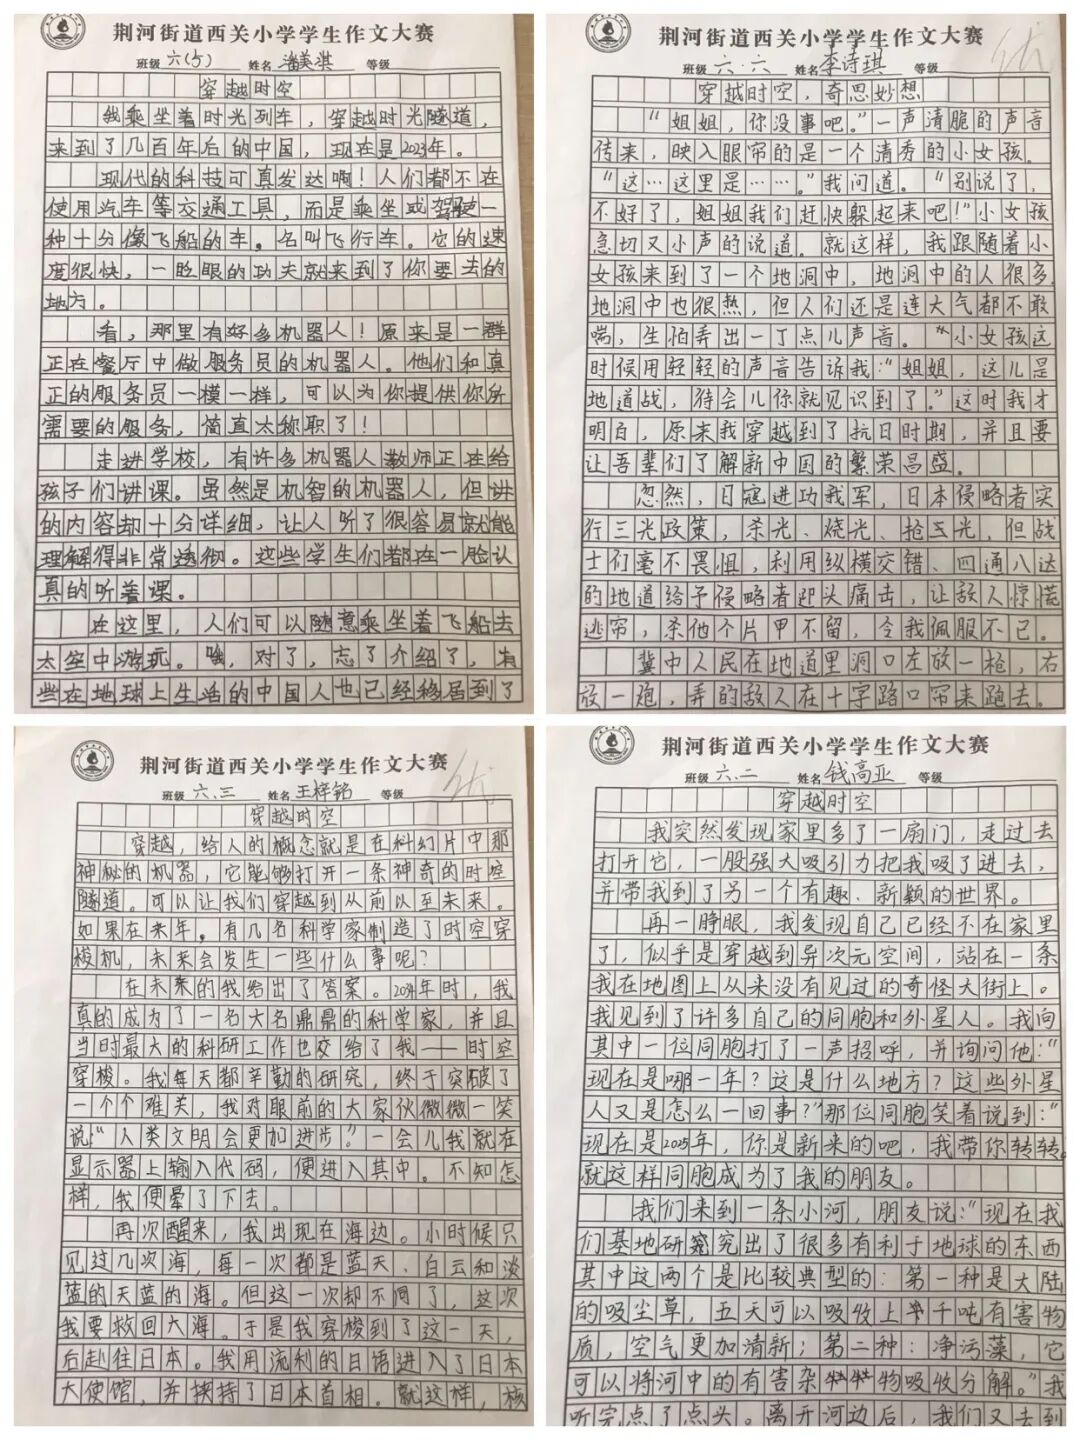 荆河街道西关小学学生作文大赛
班级 六(5) 姓名 潘美淇 等级
穿越时空
我乘坐着时光列车，穿越时光隧道，
来到了几百年后的中国，现在是2023年。
现代的科技可真发达啊！人们都不在
使用汽车等交通工具，而是乘坐或驾驶一
种十分像飞船的车。名叫飞行车。它的速
度很快，一眨眼的功夫就来到了你要去的
地方。
看，那里有好多机器人！原来是一群
正在餐厅中做服务员的机器人。他们和真
正的服务员一模一样，可以为你提供你所
需要的服务，简直太称职了！
走进学校，有许多机器人教师正在给
孩子们讲课。虽然是机智的机器人，但讲
的内容却十分详细，让人听了很容易就能
理解得非常透彻。这些学生们都在一脸认
真的听着课。
在这里，人们可以随意乘坐着飞船去
太空中游玩。哦，对了，忘了介绍了，有
些在地球上生活的中国人也已经移居到了
荆河街道西关小学学生作文大赛
班级 六.六 姓名 李诗琪 等级 优
穿越时空，奇思妙想
“姐姐，你没事吧。”一声清脆的声音
传来，映入眼帘的是一个清秀的小女孩。
“这…这里是……。”我问道。“别说了，
不好了，姐姐我们赶快躲起来吧！”小女孩
急切又小声的说道。就这样，我跟随着小
女孩来到了一个地洞中，地洞中的人很多，
地洞中也很热，但人们还是连大气都不敢
喘，生怕弄出一丁点儿声音。“小女孩这
时候用轻轻的声音告诉我：“姐姐，这儿是
地道战，待会儿你就见识到了。”这时我才
明白，原来我穿越到了抗日时期，并且要
让吾辈们了解新中国的繁荣昌盛。
忽然，日寇进功我军，日本侵略者实
行三光政策，杀光、烧光、抢光，但战
士们毫不畏惧，利用纵横交错、四通八达
的地道给予侵略者迎头痛击，让敌人惊慌
逃帘，杀他个片甲不留，令我佩服不已。
冀中人民在地道里洞口左放一枪，右
放一炮，弄的敌人在十字路口帘来跑去。
荆河街道西关小学学生作文大赛
班级 六.三 姓名 王梓铭 等级 优
穿越时空
穿越，给人的概念就是在科幻片中那
神秘的机器，它能够打开一条神奇的时空
隧道。可以让我们穿越到从前以至未来。
如果在来年，有几名科学家制造了时空穿
梭机，未来会发生一些什么事呢？
在未来的我给出了答案。2034年时，我
真的成为了一名大名鼎鼎的科学家，并且
当时最大的科研工作也交给了我——时空
穿梭。我每天都辛勤的研究，终于突破了
一个个难关，我对眼前的大家伙微微一笑
说：“人类文明会更加进步？”一会儿我就在
显示器上输入代码，便进入其中。不知怎
样，我便晕了下去。
再次醒来，我出现在海边。小时候只
见过几次海，每一次都是蓝天、白云和淡
蓝的天蓝的海。但这一次却不同了，这次
我要救回大海。于是我穿梭到了这一天，
后赴往日本。我用流利的日语进入了日本
大使馆，并挟持了日本首相。就这样，核
荆河街道西关小学学生作文大赛
班级 六.二 姓名 钱高亚 等级
穿越时空
我突然发现家里多了一扇门，走过去
打开它，一股强大吸引力把我吸了进去，
并带我到了另一个有趣、新颖的世界。
再一睁眼，我发现自己已经不在家里
了，似乎是穿越到异次元空间，站在一条
我在地图上从来没有见过的奇怪大街上。
我见到了许多自己的同胞和外星人。我向
其中一位同胞打了一声招呼，并询问他：“
现在是哪一年？这是什么地方？这些外星
人又是怎么一回事？”那位同胞笑着说到：“
现在是2025年，你是新来的吧，我带你转转。
就这样同胞成为了我的朋友。
我们来到一条小河，朋友说：“现在我
们基地研究出了很多有利于地球的东西
其中这两个是比较典型的：第一种是大陆
的吸尘草，五天可以吸收上千吨有害物
质，空气更加清新；第二种：净污藻，它
可以将河中的有害杂物吸收分解。”我
听完点了点头。离开河边后，我们又去到